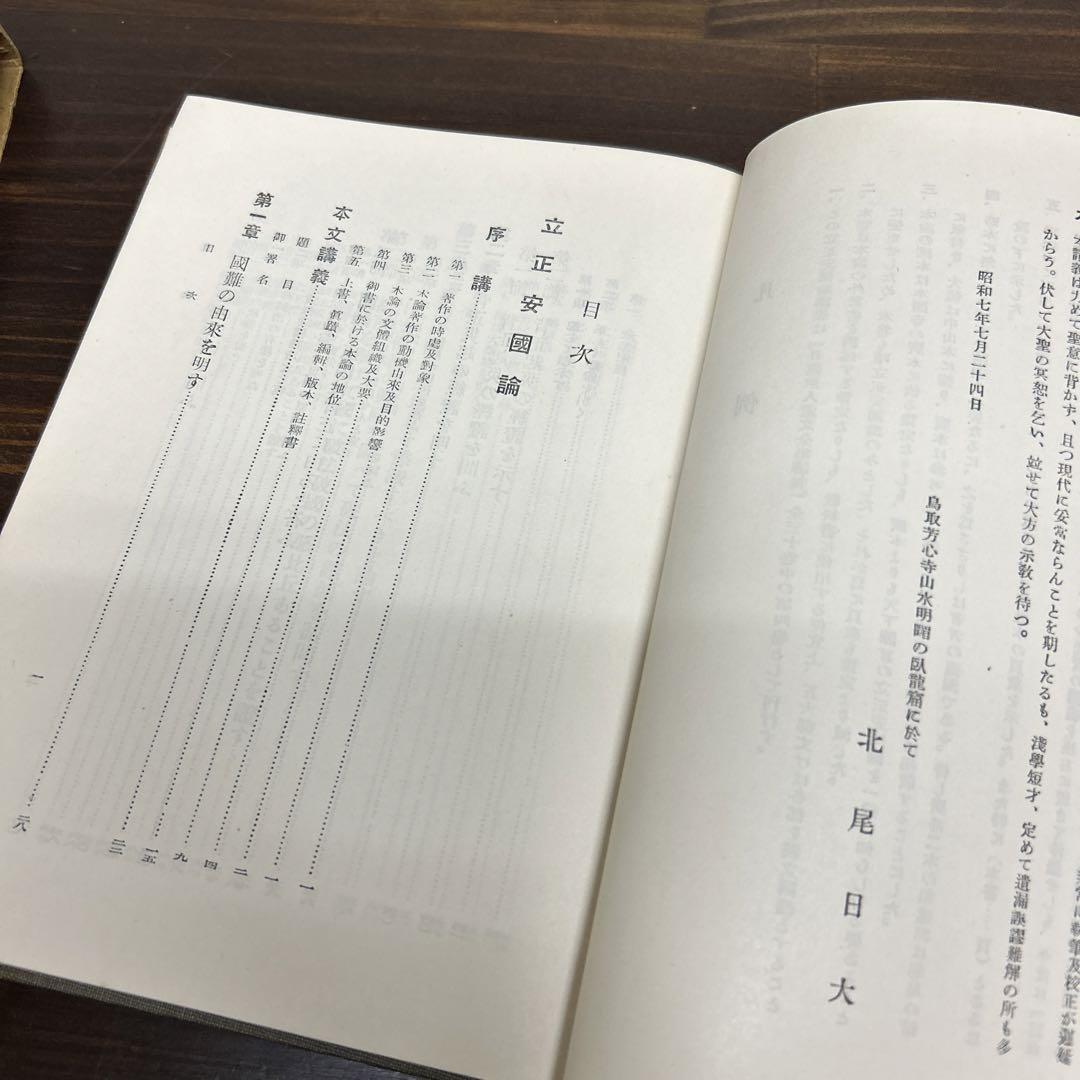 執筆及校正が遲延
本講義は力めて聖意に背かず、且つ現代に妥當ならんことを期したるも、淺學短才、定めて遺漏誤謬難解の所も多
からう。伏して大聖の冥恕を乞い、竝せて大方の示敎を待つ。
昭和七年七月二十四日
鳥取芳心寺山水明媚の臥龍窟に於て
北尾日大
目次
立正安國論
序講……一
第一 著作の時處及對象……一
第二 本論著作の動機由來及目的影響……二
第三 本論の文體組織及大要……四
第四 御書に於ける本論の地位……九
第五 上書、眞蹟、編輯、版本、註釋書……一五
本文講義……二二
題目
御署名
第一章 國難の由來を明す……二八
目次
一